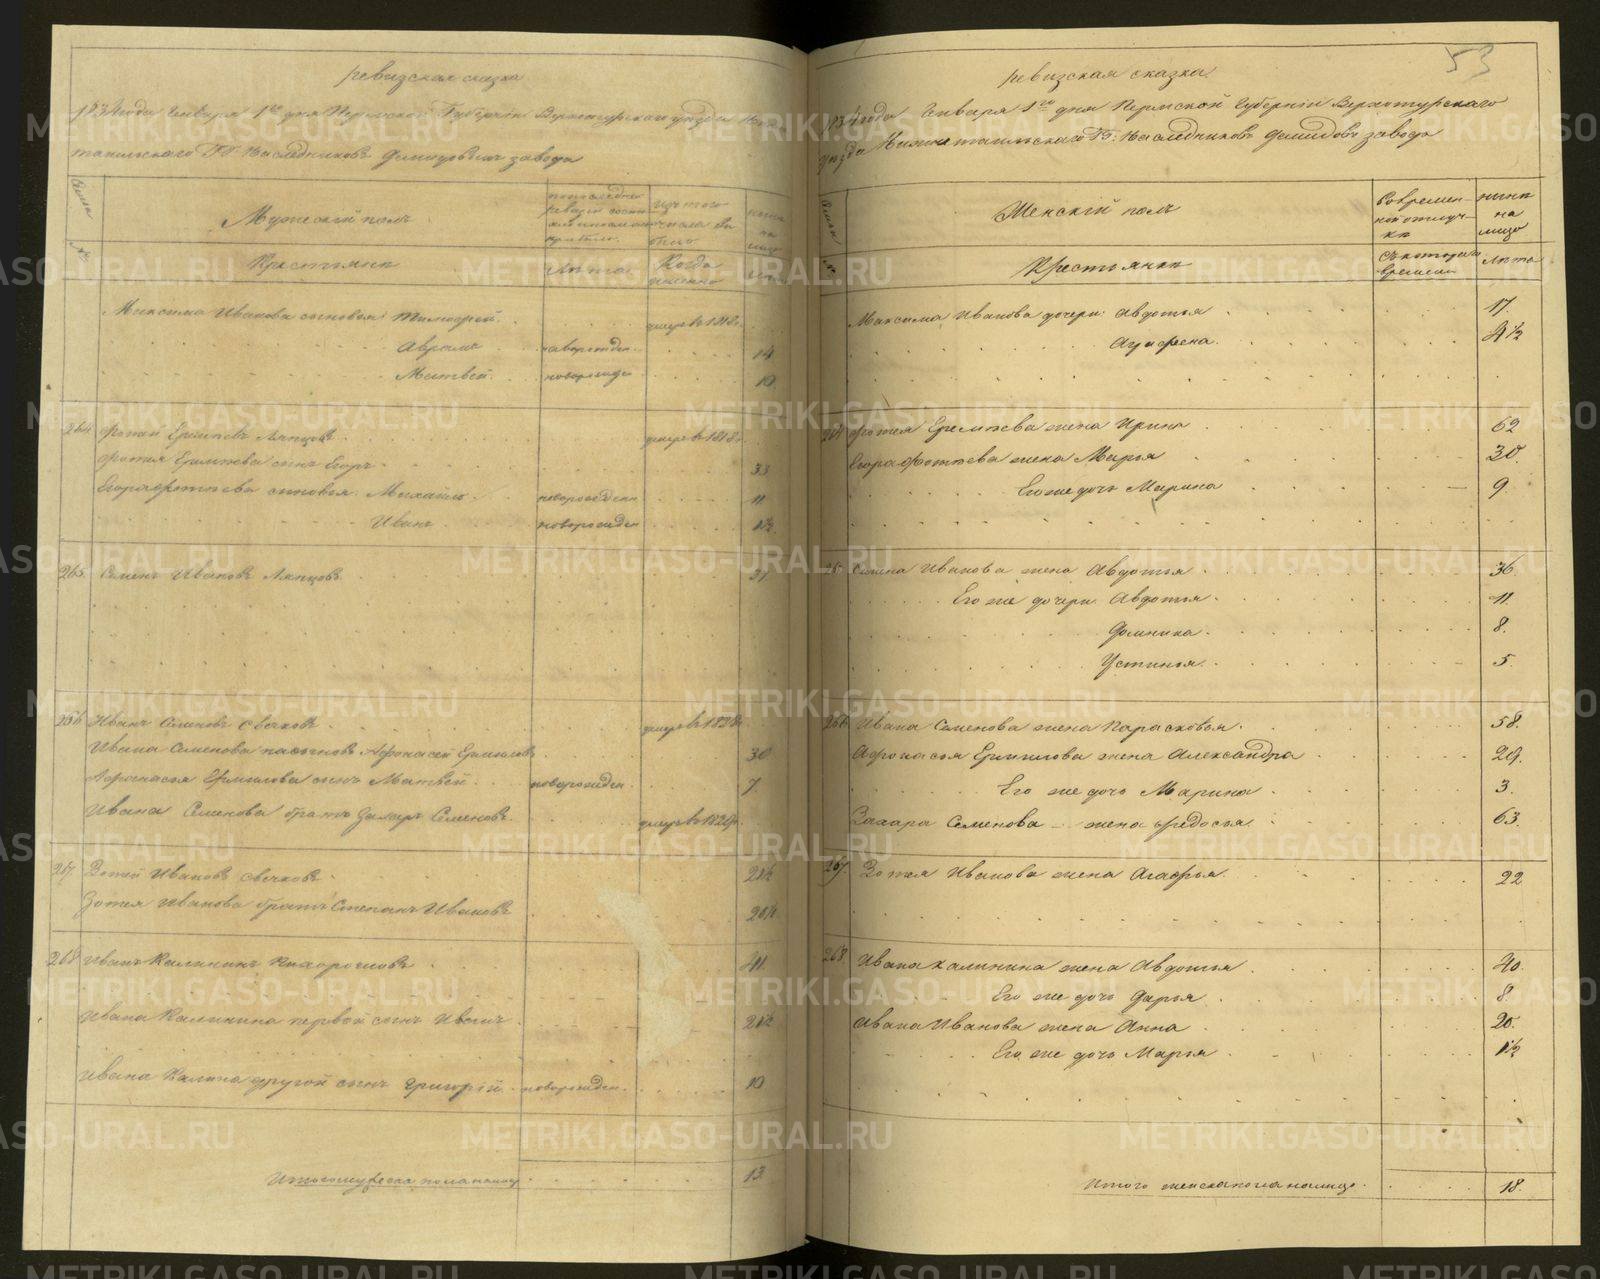 53
ревизская сказка
1834 года Генваря 1го дня Пермской Губернiи Верхотурского уезда Нижне
тагильского Гг: Наследниковъ Демидовыхъ завода
Мужескiй полъ
Крестьяне
Лета
Когда
именно
Максима Иванова сыновья: Тимофей умеръ 1818
Аврамъ новорожден. 14
Матвей новорожден 10
264 Фотей Еремеевъ Ляпцовъ умеръ 1818
Фотея Еремеева сынъ Егоръ 33
Егора Фотеева сыновья Михайло новорожден 11
Иванъ новорожден 1½
265 Семенъ Ивановъ Ляпцовъ 37
266 Иванъ Семеновъ Свечковъ умеръ 1828
Ивана Семенова пасынокъ Афонасей Ермиловъ 30
Афонасья Ермилова сынъ Матвей новорожден 7
Ивана Семенова братъ Захаръ Семеновъ
267 Зотей Ивановъ Свечковъ
Зотея Иванова братъ Степанъ Ивановъ
268 Иванъ Калининъ 41
Ивана Калинина первой сынъ Иванъ
Ивана Калинина другой сынъ Григорiй новорожден. 10
Итого мужеска пола налицо 13
ревизская сказка
1834 года Генваря 1го дня Пермской Губернiи Верхотурского
уезда Нижнетагильского Гг: Наследниковъ Демидовъ завода
Женскiй полъ
Во времен-
ной отлуч-
ке
ныне
на
лицо
Крестьянки
Съ которого
времени
Лета
Максима Иванова дочери: Авдотья 17
Агафена 4½
264 Фотея Еремеева жена Ирина 62
Егора Фотеева жена Марья 30
Его же дочь Марина 9
265 Семена Иванова жена Авдотья 36
Его же дочери Авдотья 11
Домника 8
Устинья 5
266 Ивана Семенова жена Парасковья 58
Афонасья Ермилова жена Александра 29
Его же дочь Марина 3
Захара Семенова жена Федосья 63
267 Зотея Иванова жена Агафья 22
268 Ивана Калинина жена Авдотья 40
Его же дочь Дарья 8
Ивана Иванова жена Анна 20
Его же дочь Марья 1½
Итого женска пола налицо 18
METRIKI.GASO-URAL.RU